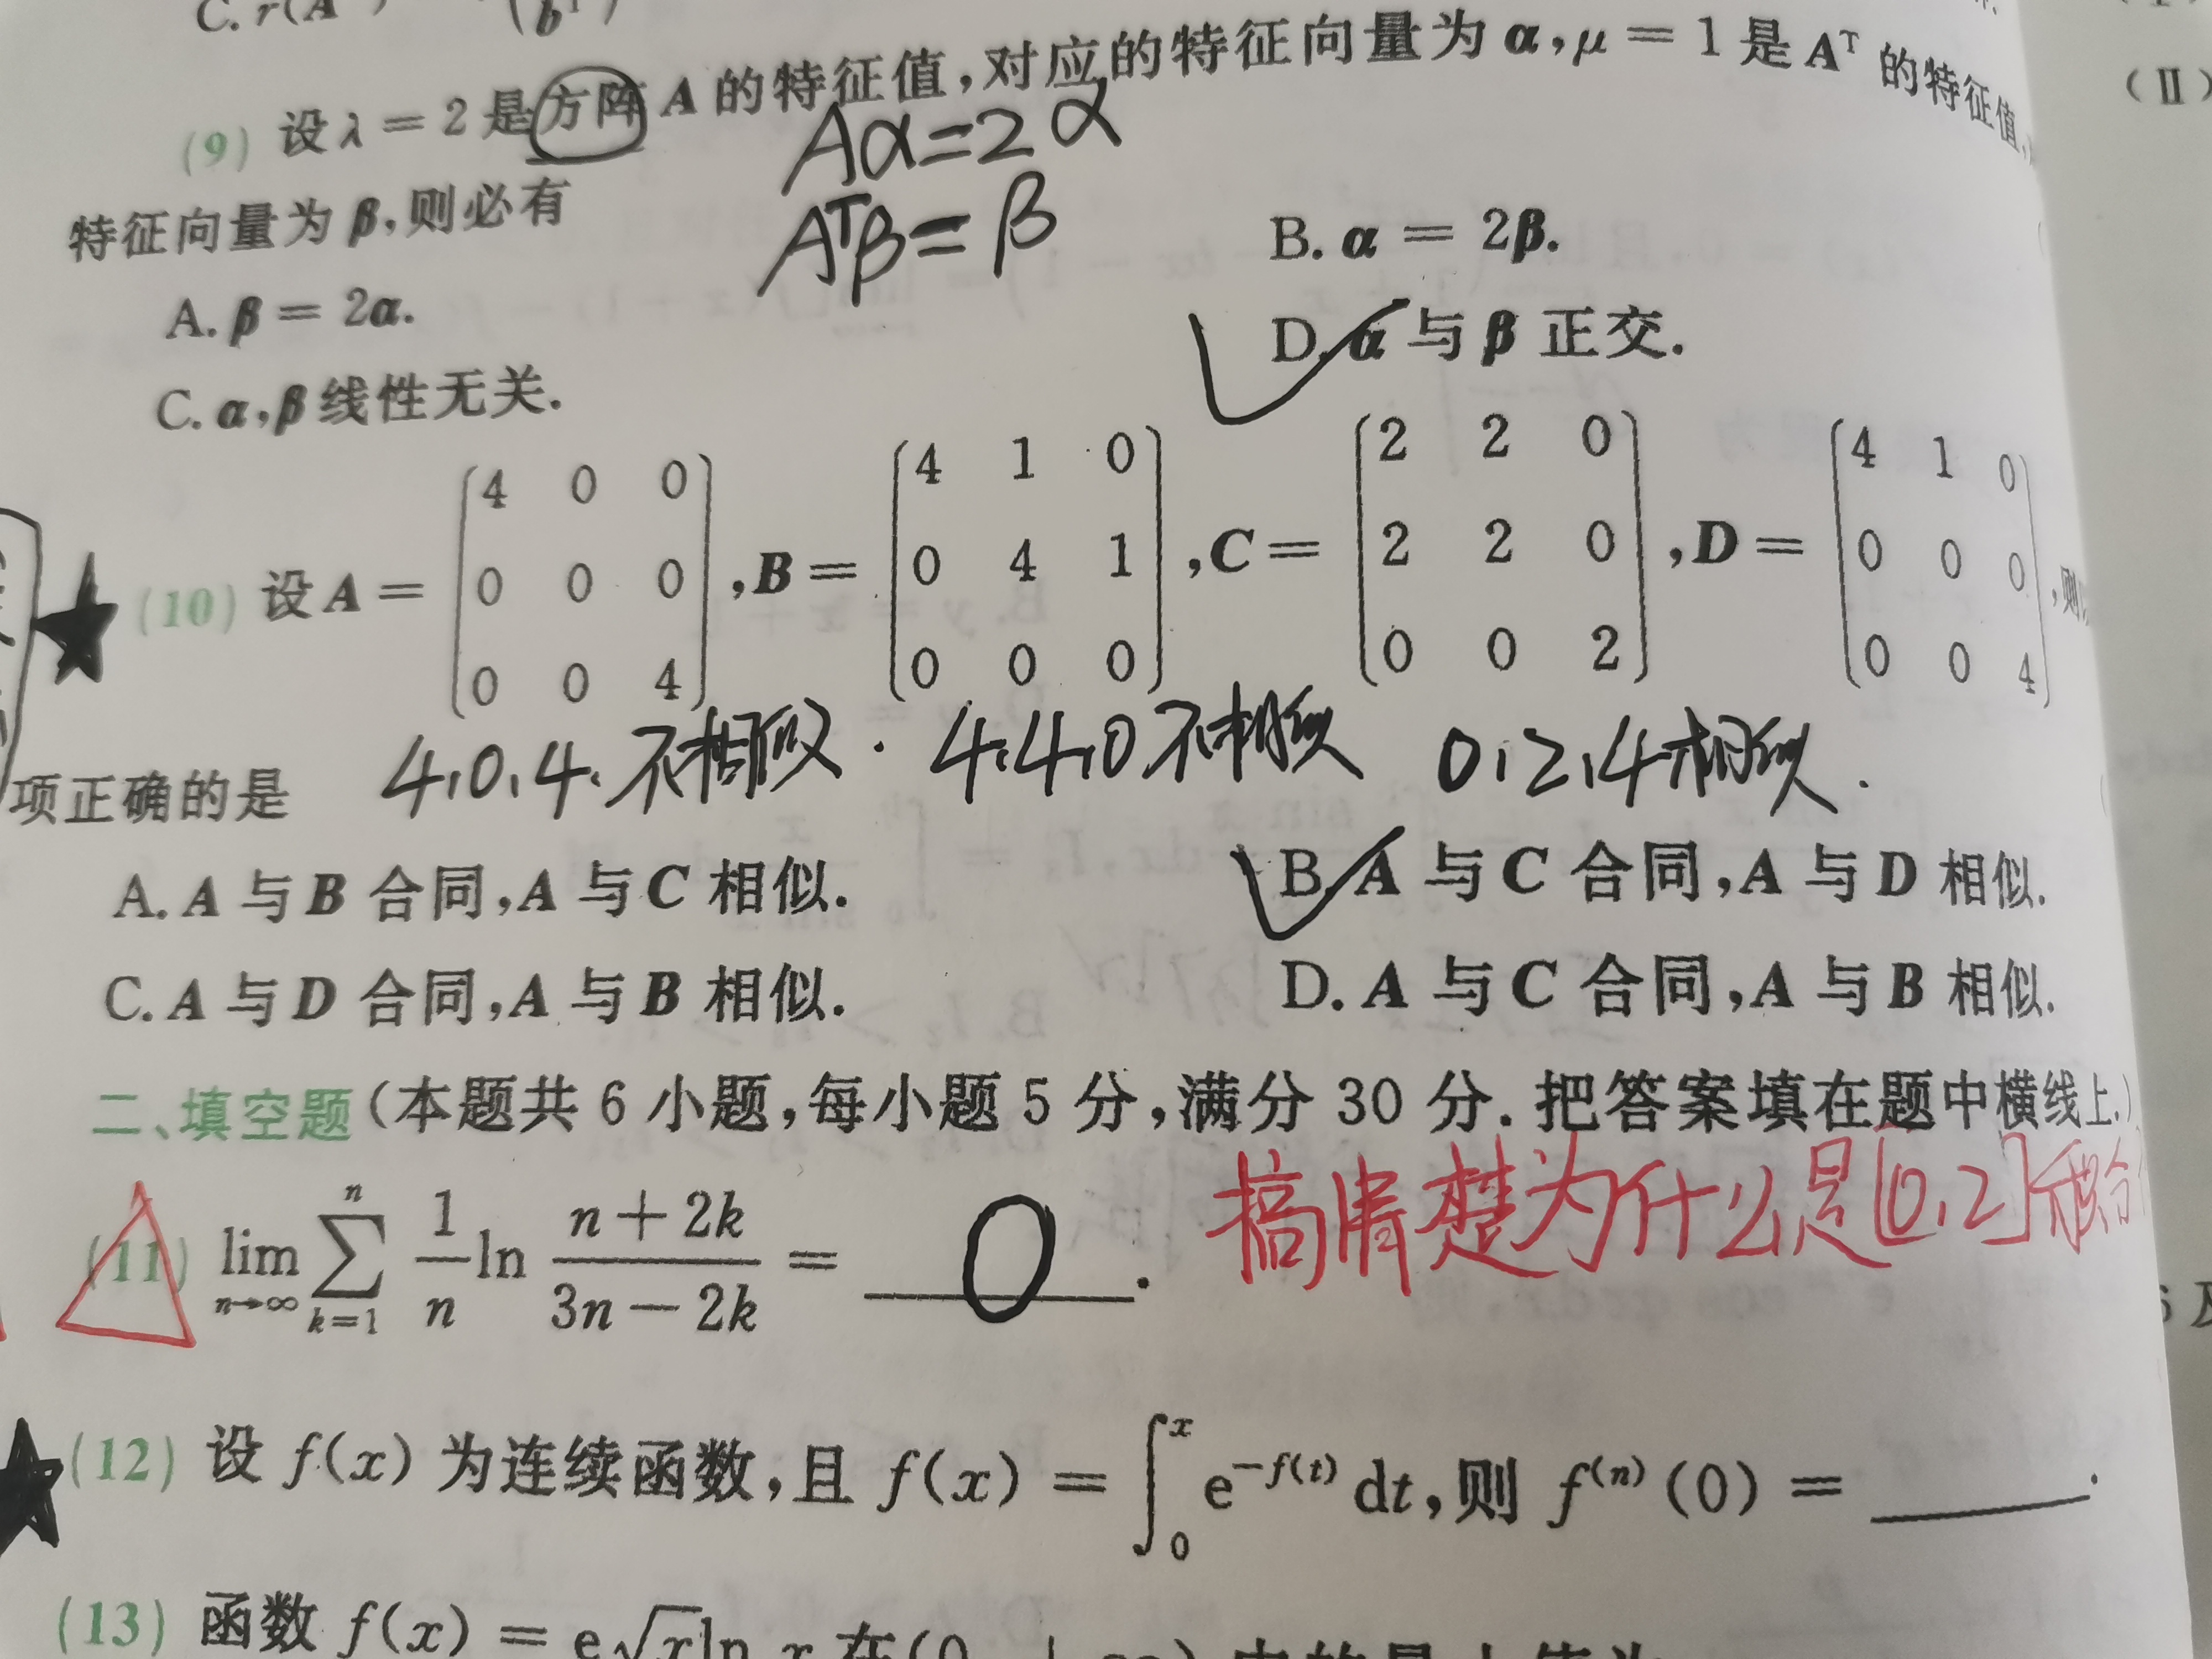 C. r(A
(b^T)
(9) 设 λ = 2 是方阵 A 的特征值,对应的特征向量为 α, μ = 1 是 A^T 的特征值,
(Ⅱ)
Aα=2α
特征向量为 β,则必有
A^Tβ=β
A. β = 2α.
B. α = 2β.
C. α,β 线性无关.
D. α 与 β 正交.
(10) 设 A = [4 0 0; 0 0 0; 0 0 4], B = [4 1 0; 0 4 1; 0 0 0], C = [2 2 0; 2 2 0; 0 0 2], D = [4 1 0; 0 0 0; 0 0 4], 则
4,0,4. 不相似. 4,4,0 不相似 0,2,4 相似.
项正确的是
A. A 与 B 合同,A 与 C 相似.
B. A 与 C 合同,A 与 D 相似.
C. A 与 D 合同,A 与 B 相似.
D. A 与 C 合同,A 与 B 相似.
二、填空题(本题共 6 小题,每小题 5 分,满分 30 分. 把答案填在题中横线上.)
搞清楚为什么是[0,2]积分
(11) lim_{n→∞} ∑_{k=1}^{n} 1/n ln (n+2k)/(3n−2k) = 0.
(12) 设 f(x) 为连续函数,且 f(x) = ∫_0^x e^{−f(t)} dt,则 f^{(n)}(0) = ______.
(13) 函数 f(x) = e√x ln x 在(0,